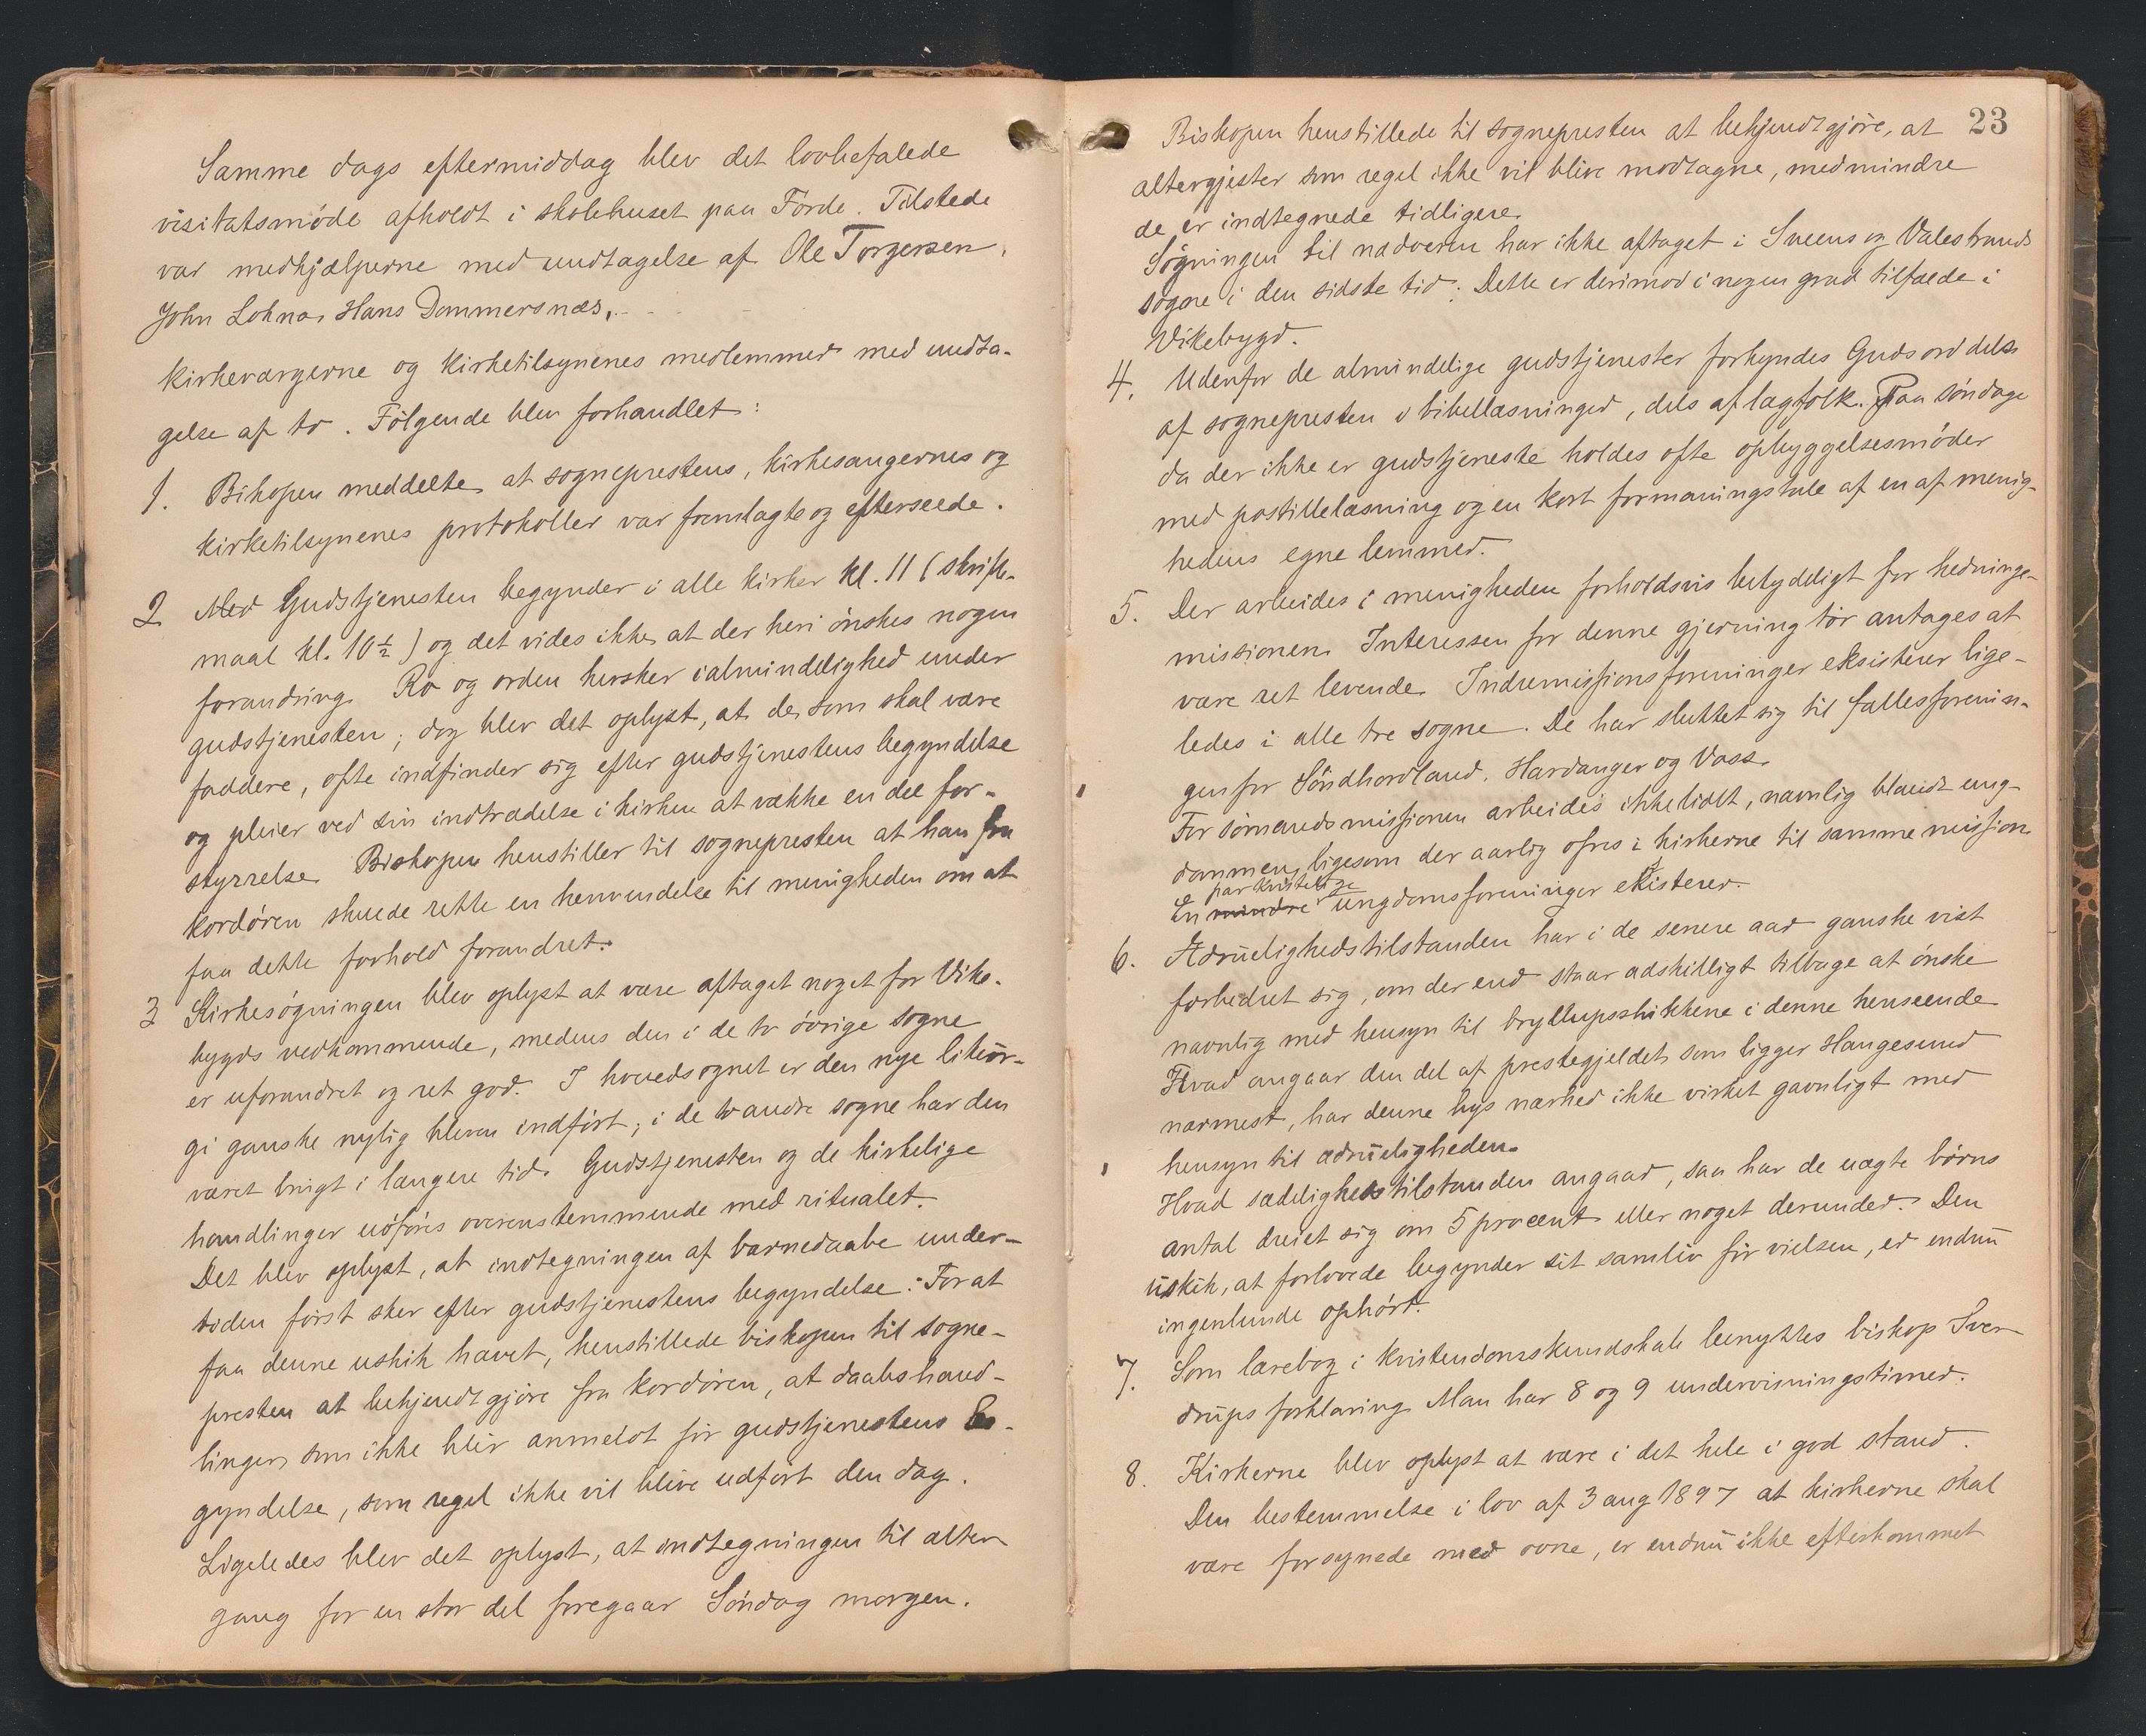 Samme dags eftermiddag blev det lovbefalede
visitatsmøde afholdt i skolehuset paa Førde. Tilstede
var medhjælperne med undtagelse af Ole Torgersen,
John Lohna, Hans Dommersnæs,
kirkeværgerne og kirketilsynenes medlemmer med undta-
gelse af to. Følgende blev forhandlet:
1. Bikopen meddelte at sogneprestens, kirkesangernes og
kirketilsynenes protokoller var fremlagte og efterseede.
2 Med Gudstjenesten begynder i alle kirker kl. 11 (skrifte-
maal kl. 10½) og det vides ikke, at der heri ønskes nogen
forandring. Ro og orden hersker i almindelighed under
gudstjenesten; dog blev det oplyst, at de, som skal være
faddere, ofte indfinder sig efter gudstjenestens begyndelse
og pleier ved sin indtrædelse i kirken at vække en del for-
styrrelse. Biskopen henstiller til sognepresten at han fra
kordøren skulde rette en henvendelse til menigheden om at
faa dette forhold forandret.
3 Kirkesøgningen blev oplyst at være aftaget noget for Vike-
bygds vedkommende, medens den i de to øvrige sogne
er uforandret og ret god. I hovedsognet er den nye litur-
gi ganske nylig bleven indført; i de to andre sogne har den
været brugt i længere tid. Gudstjenesten og de kirkelige
handlinger udføres overenstemmende med ritualet.
Det blev oplyst, at indtegningen af barnedaabe under-
tiden først sker efter gudstjenestens begyndelse. For at
faa denne uskik hævet, henstillede biskopen til sogne-
presten at bekjendtgjøre fra kordøren, at daabshand-
linger, som ikke blir anmeldt før gudstjenestens be-
gyndelse, som regel ikke vil blive udført den dag.
Ligeledes blev det oplyst, at indtegningen til alter-
gang for en stor del foregaar Søndag morgen.
23
Biskopen henstillede til sognepresten at bekjendtgjøre, at
altergjester som regel ikke vil blive modtagne, medmindre
de er indtegnede tidligere.
Søgningen til nadveren har ikke aftaget i Sveens og Valestrands
sogne i den sidste tid; Dette er derimod i nogen grad tilfælde i
Vikebygd.
4. Udenfor de almindelige gudstjenester forkyndes Guds ord dels
af sognepresten v bibellæsninger, dels af lægfolk. Paa søndage
da der ikke er gudstjeneste holdes ofte opbyggelsesmøder
med postillelæsning og en kort formaningstale af en af menig-
hedens egne lemmer.
5. Der arbeides i menigheden forholdsvis betydeligt for hedninge-
missionen. Interessen for denne gjerning tør antages at
være ret levende. Indremissionsforeninger eksisterer lige-
ledes i alle tre sogne. De har sluttet sig til fællesforenin-
gen for Søndhordland, Hardanger og Voss.
For sømandsmissionen arbeides ikke lidet, navnlig blandt ung-
dommen, ligesom der aarlig ofres i kirkerne til samme mission
par kristelige
En mindre ungdomsforeninger eksisterer.
6. Ædruelighedstilstanden har i de senere aar ganske vist
forbedret sig, om der end staar adskilligt tilbage at ønske
navnlig med hensyn til bryllupsskikkene i denne henseende
Hvad angaar den del af prestegjeldet, som ligger Haugesund
nærmest, har denne bys nærhed ikke virket gavnligt med
hensyn til ædrueligheden.
Hvad sædelighedstilstanden angaar, saa har de uægte børns
antal dreiet sig om 5 procent eller noget derunder. Den
uskik, at forlovede begynder sit samliv før vielsen, er endnu
ingenlunde ophørt.
7. Som lærebog i kristendomskundskab benyttes biskop Sver-
drups forklaring. Man har 8 og 9 undervisningstimer.
8. Kirkerne blev oplyst at være i det hele i god stand.
Den bestemmelse i lov af 3 aug 1897 at kirkerne skal
være forsynede med ovne, er endnu ikke efterkommet